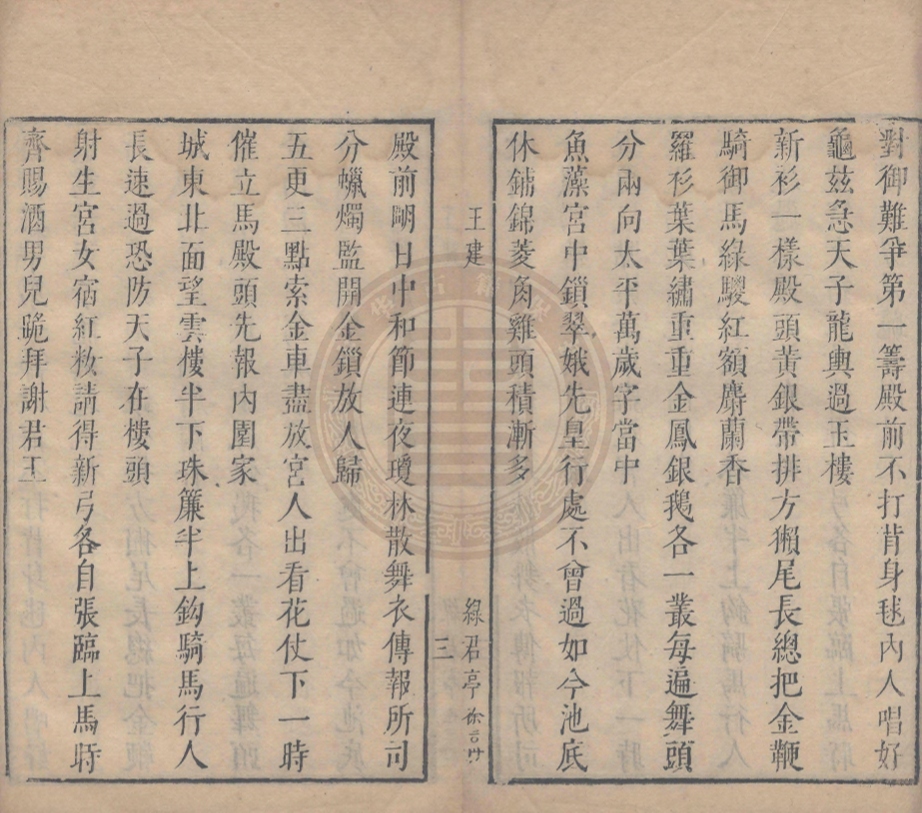 對御難爭第一籌殿前不打背身毬內人唱好
龜茲急天子龍輿過玉樓
新衫一樣殿頭黃銀帶排方獺尾長總把金鞭
騎御馬綠騣紅額麝蘭香
羅衫葉葉繡重重金鳳銀鵝各一叢每遍舞頭
分兩向太平萬歲字當中
魚藻宮中鎖翠娥先皇行處不曾過如今池底
休鋪錦菱角雞頭積漸多
王建
綠君亭
三
殿前明日中和節連夜瓊林散舞衣傳報所司
分蠟燭監開金鎖放人歸
五更三點索金車盡放宮人出看花仗下一時
催立馬殿頭先報內園家
城東北面望雲樓半下珠簾半上鈎騎馬行人
長速過恐防天子在樓頭
射生宮女宿紅妝請得新弓各自張臨上馬時
齊賜酒男兒跪拜謝君王